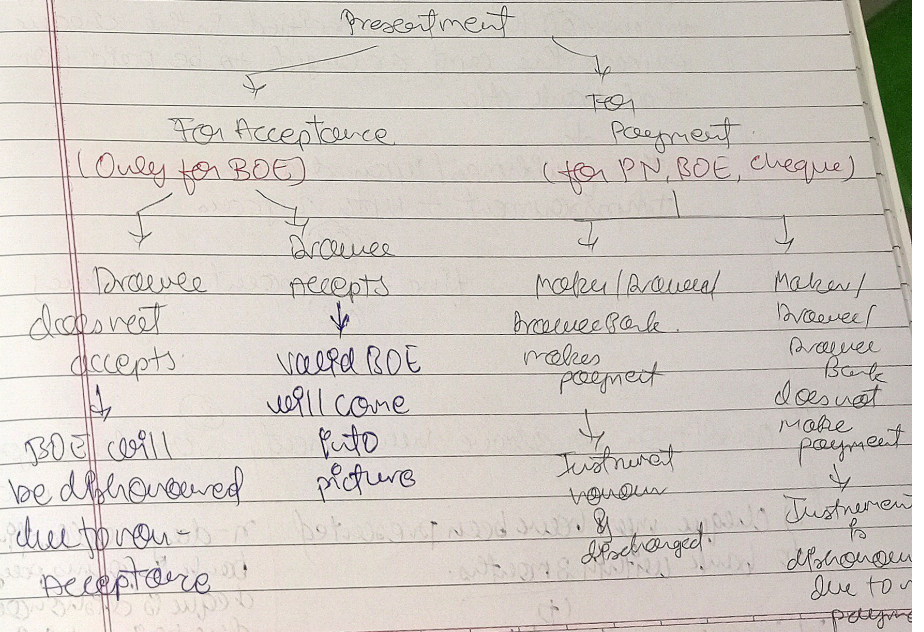 Presentment
For Acceptance
(Only for BOE)
Drawee
does not
accepts
BOE will
be dishonoured
due to non
Acceptance
Drawee
Accepts
valid BOE
will come
into
picture
For
Payment
(for PN, BOE, cheque)
Maker/Drawee/
Drawee Bank
makes
payment
Instrument
honour
&
discharged.
Maker/
Drawee/
Drawee
Bank
does not
make
payment
Instrument
is
dishonour
due to n
paym